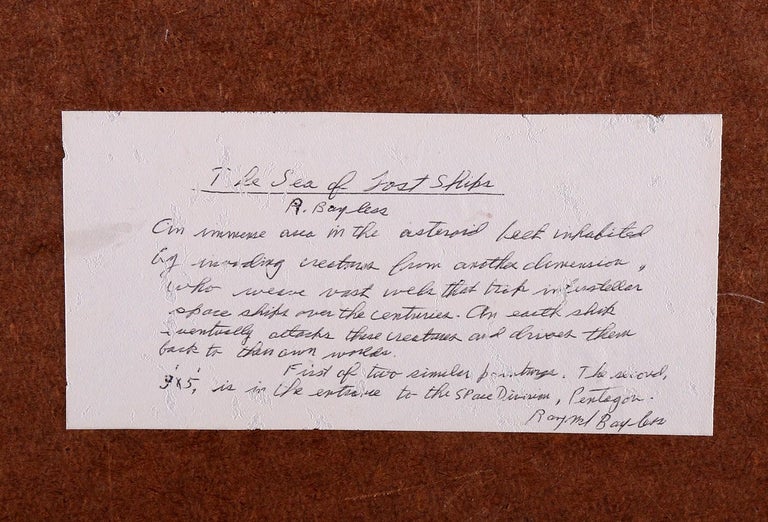 The Sea of Lost Ships
R. Bayless
An immense area in the asteroid belt inhabited
by invading creatures from another dimension,
who weave vast webs that trap interstellar
space ships over the centuries. An earth ship
eventually attacks these creatures and drives them
back to their own worlds.
First of two similar paintings. The second,
3'x5', is in the entrance to the Space Division, Pentagon.
Raymd Bayless